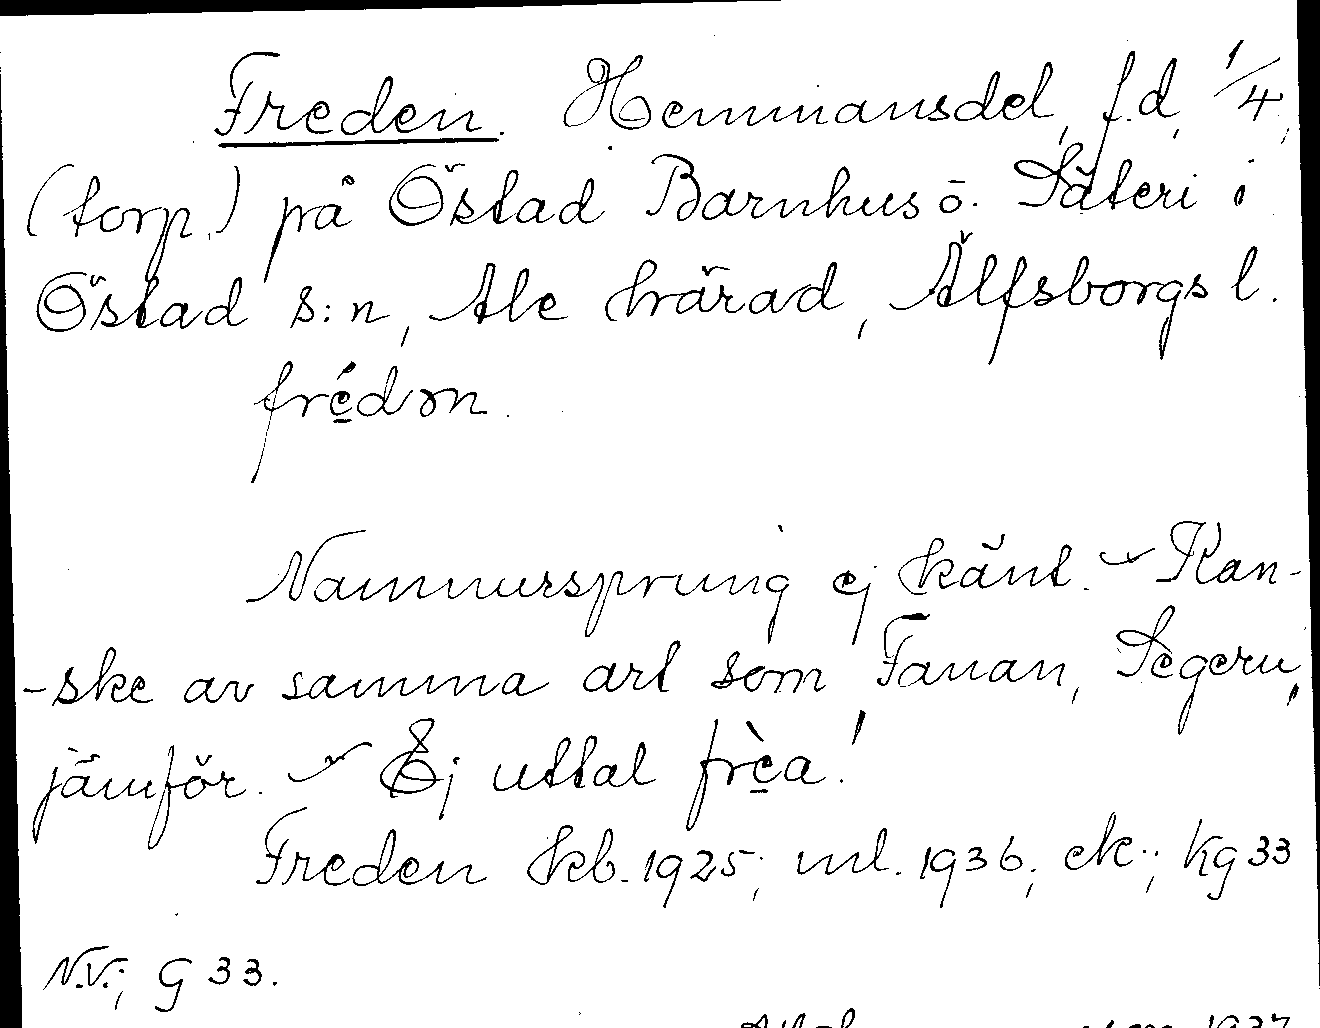 Freden. Hemmansdel, f.d. 1/4,
(torp,) på Östad Barnhus ö. Säteri i
Östad s:n, Ale härad, Älfsborgs l.
frédən.
Namnursprung ej känt. – Kan-
-ske av samma art som Fanan, Segern,
jämför. – Ej uttal frèa!
Freden kb. 1925; ml. 1936; ek.; Kg 33
N.V.; G 33.
1937